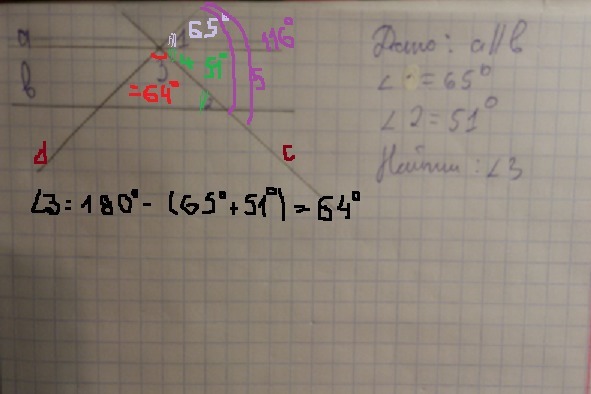 a
65°
116°
4 51°
5
3
= 64°
b
2
d
c
∠3 = 180° - (65° + 51°) = 64°
Дано: a||b
∠1 = 65°
∠2 = 51°
Найти: ∠3